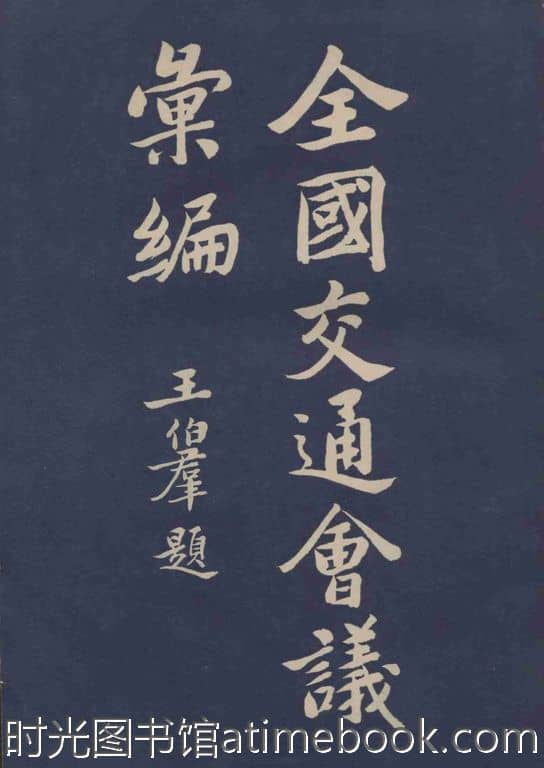 全國交通會議
彙編
王伯羣題
时光图书馆atimebook.com